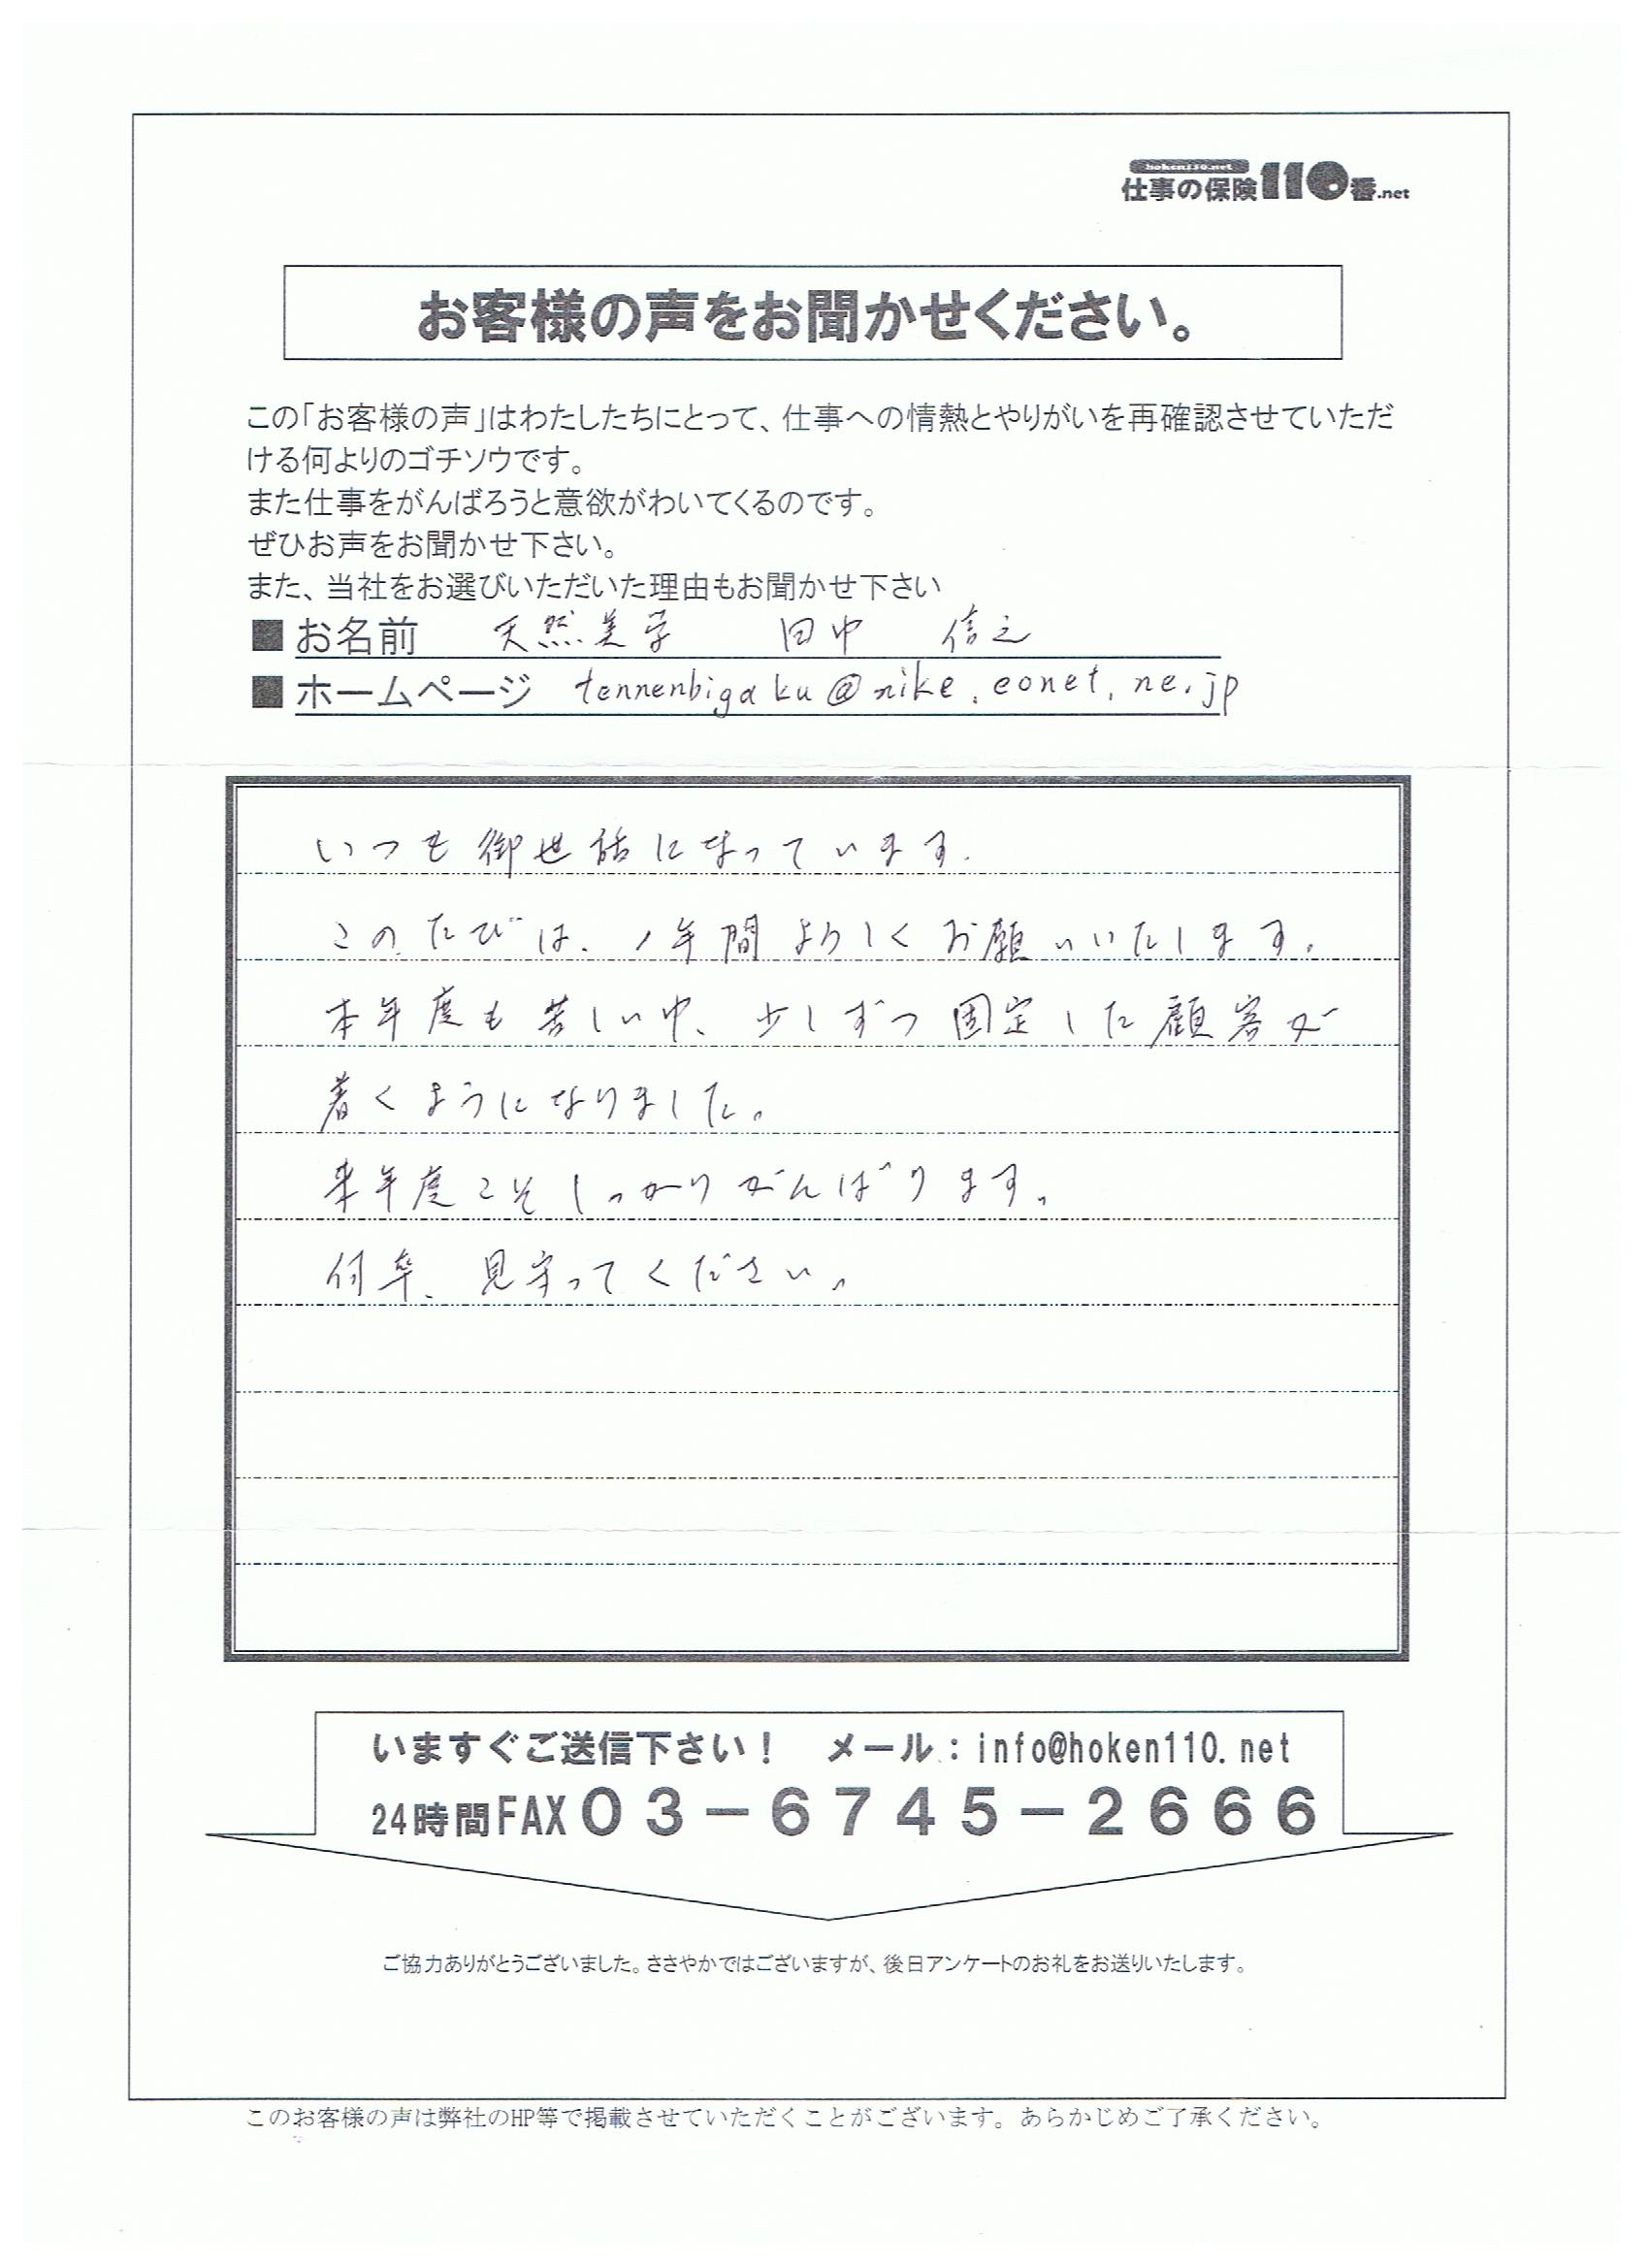 hoken110.net
仕事の保険110番.net
お客様の声をお聞かせください。
この「お客様の声」はわたしたちにとって、仕事への情熱とやりがいを再確認させていただ
ける何よりのゴチソウです。
また仕事をがんばろうと意欲がわいてくるのです。
ぜひお声をお聞かせ下さい。
また、当社をお選びいただいた理由もお聞かせ下さい
■お名前 天然美学 田中 信之
■ホームページ tennenbigaku@nike.eonet.ne.jp
いつも御世話になっています.
このたびは、1年間よろしくお願いいたします。
本年度も苦しい中、少しずつ固定した顧客が
着くようになりました。
来年度こそしっかりがんばります。
何卒、見守ってください。
いますぐご送信下さい！ メール：info@hoken110.net
24時間FAX０３－６７４５－２６６６
ご協力ありがとうございました。ささやかではございますが、後日アンケートのお礼をお送りいたします。
このお客様の声は弊社のHP等で掲載させていただくことがございます。あらかじめご了承ください。